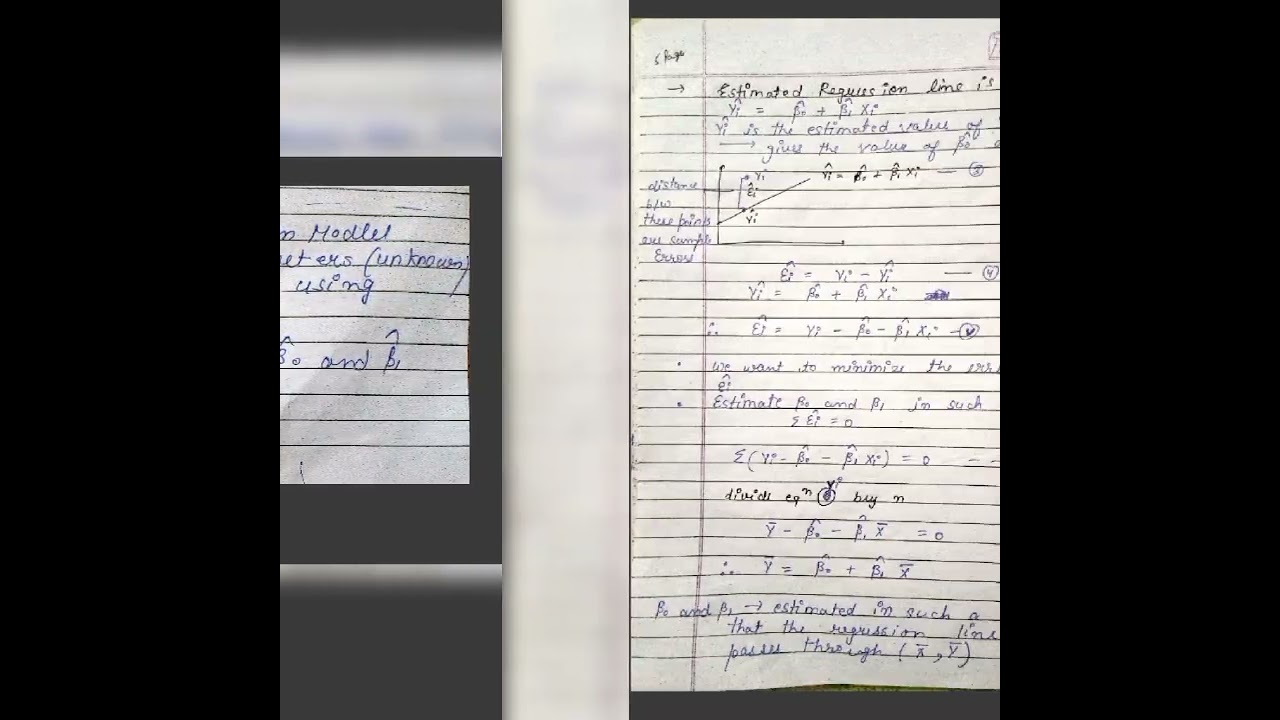 n Modlel
eters (unknown)
using
β̂₀ and β̂₁
→ Estimated Regression line is
Ŷi = β̂₀ + β̂₁ Xi
Ŷi is the estimated value of
→ gives the value of β̂₀
distance
b/w
these points
are sample
Errors
Yi
ε̂i
Ŷi
Ŷi = β̂₀ + β̂₁ Xi — ③
ε̂i = Yi - Ŷi — ④
Ŷi = β̂₀ + β̂₁ Xi
∴ ε̂i = Yi - β̂₀ - β̂₁ Xi — ⓥ
• We want to minimize the err
ε̂i
• Estimate β₀ and β₁ in such
Σ ε̂i = 0
Σ(Yi - β̂₀ - β̂₁ Xi) = 0 - -
divide eqⁿ vi buy n
Ȳ - β̂₀ - β̂₁ X̄ = 0
∴ Ȳ = β̂₀ + β̂₁ X̄
β₀ and β₁ → estimated in such a
that the regression line
passes through (X̄, Ȳ)